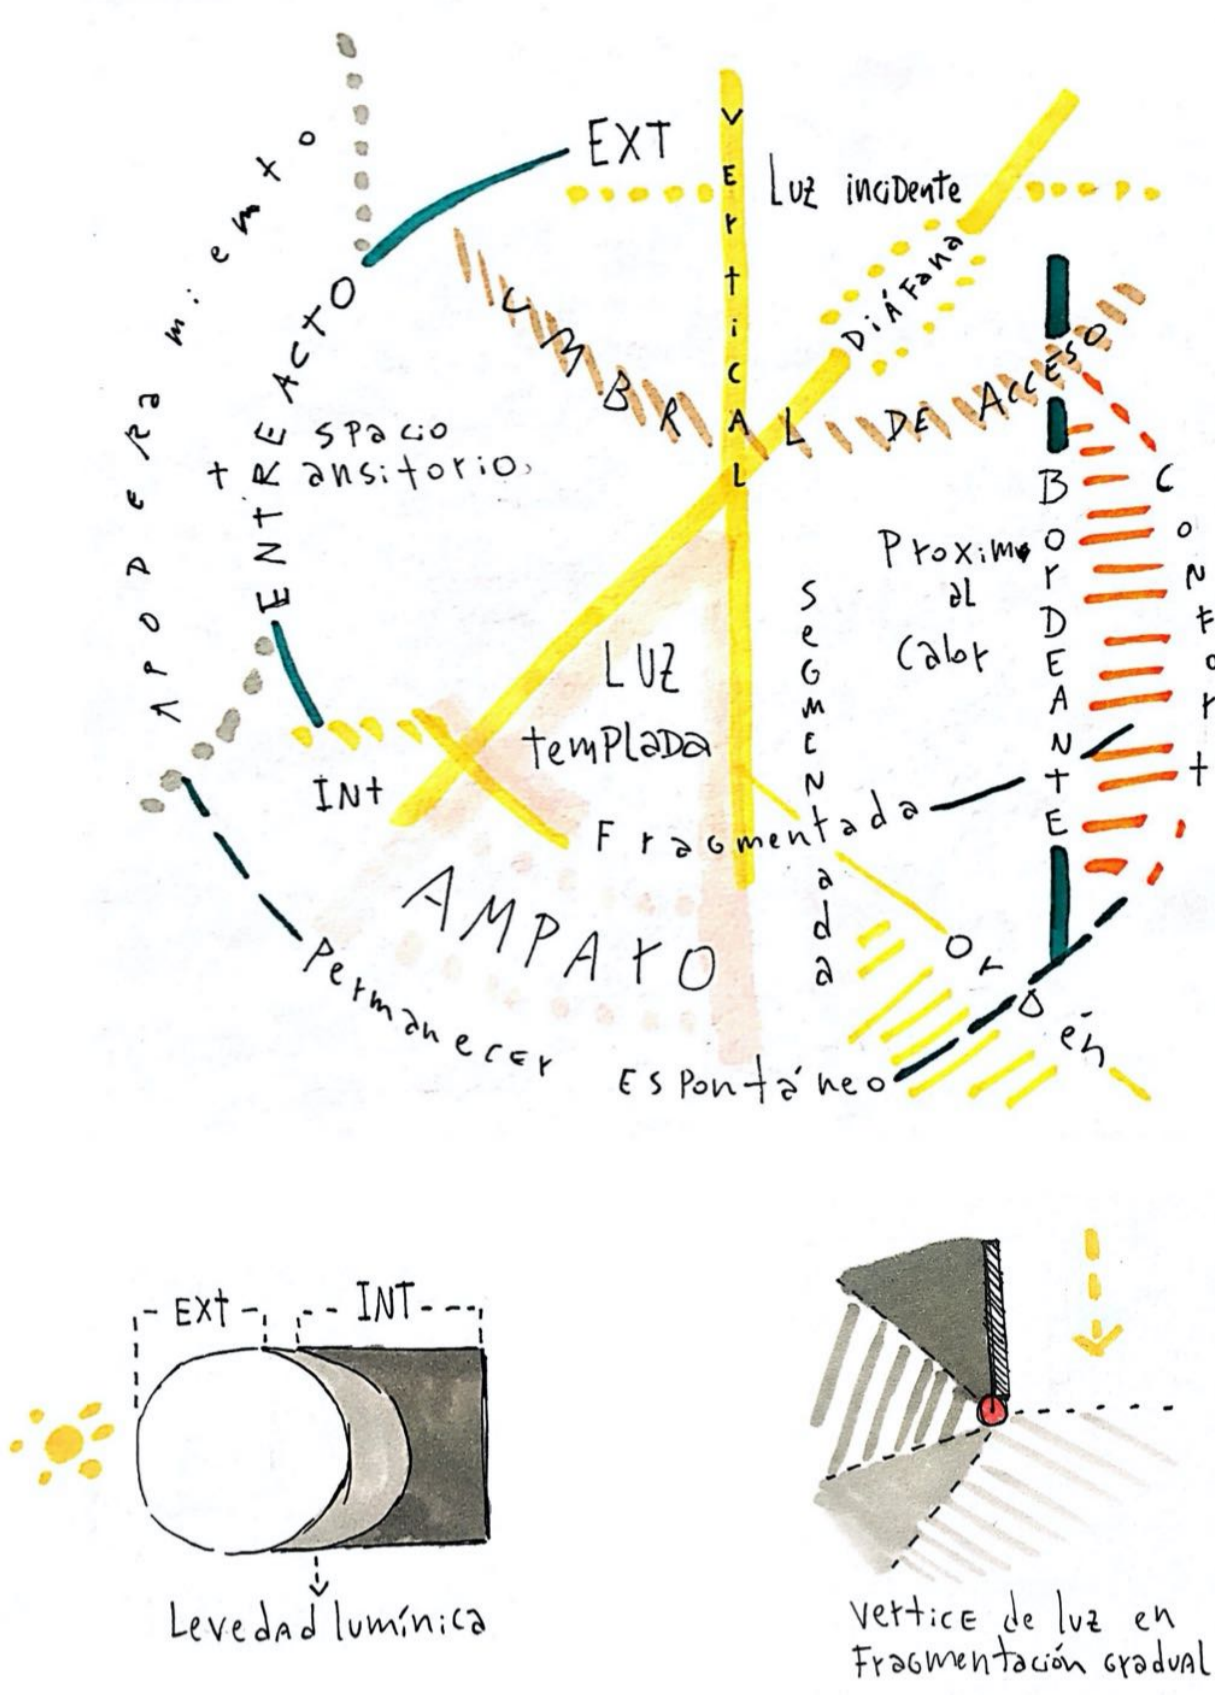 EXT
VErtiCAL
Luz incidente
DiÁFana
Apoderamiento
ENTREACTO
UMBRAL DE ACCESO
Espacio
transitorio,
BOrDEANTE
CONFort
Proximo
al
Calor
SeGMENtada
LUZ
temPlaDa
INt
Fragmentada
AMPArO
Permanecer
EsPontáneo
OrDen
- EXt -
- - INT - - -
LevedAd lumínica
Vertice de luz en
Fragmentación GradUAl